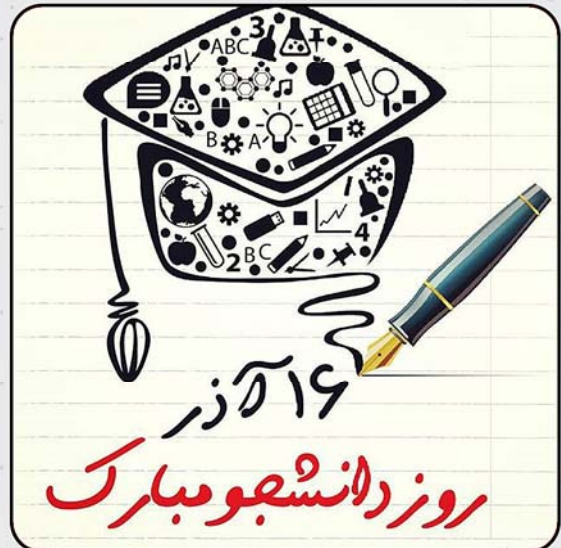 3
ABC
B A
4
2 BC
۱۶ آذر
روز دانشجو مبارک